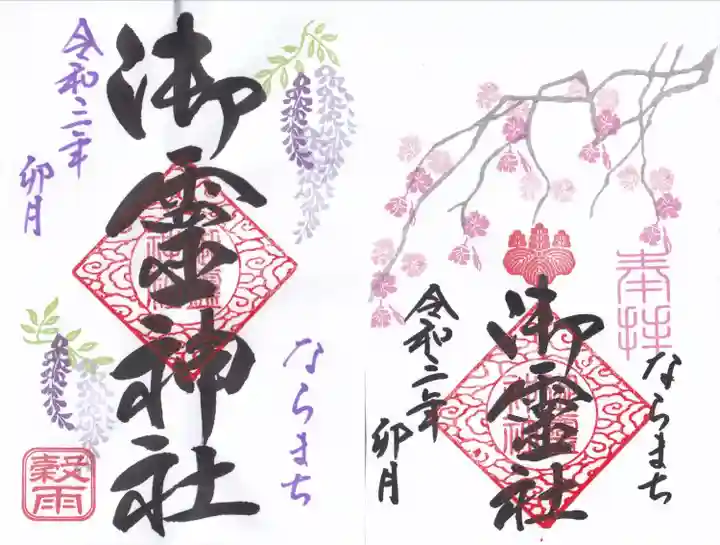 令和二年
卯月
御霊神社
ならまち
穀雨
奉拝
ならまち
御霊社
令和二年
卯月